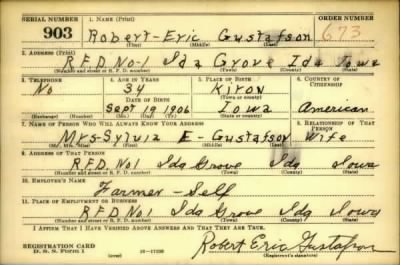 SERIAL NUMBER 1. NAME (Print) ORDER NUMBER
903 Robert-Eric Gustafson 673
(First) (Middle) (Last)
2. ADDRESS (Print)
R.F.D. No-1 Ida Grove Ida Iowa
(Number and street or R. F. D. number) (Town) (County) (State)
3. TELEPHONE 4. AGE IN YEARS 5. PLACE OF BIRTH 6. COUNTRY OF CITIZENSHIP
No 34 Kiron
DATE OF BIRTH (Town or county)
Sept 19 1906 Iowa American
(Exchange) (Number) (Mo.) (Day) (Yr.) (State or country)
7. NAME OF PERSON WHO WILL ALWAYS KNOW YOUR ADDRESS 8. RELATIONSHIP OF THAT PERSON
Mrs-Sylvia E-Gustafson Wife
(Mr., Mrs., Miss) (First) (Middle) (Last)
9. ADDRESS OF THAT PERSON
R.F.D. No1 Ida Grove Ida Iowa
(Number and street or R. F. D. number) (Town) (County) (State)
10. EMPLOYER'S NAME
Farmer-Self
11. PLACE OF EMPLOYMENT OR BUSINESS
R.F.D. No1 Ida Grove Ida Iowa
(Number and street or R. F. D. number) (Town) (County) (State)
I AFFIRM THAT I HAVE VERIFIED ABOVE ANSWERS AND THAT THEY ARE TRUE.
REGISTRATION CARD
D. S. S. Form 1 (over) Robert Eric Gustafson
(Registrant's signature)